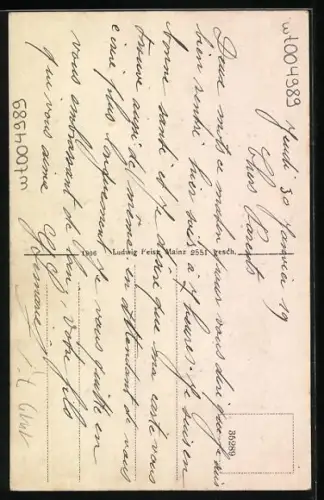 wt004989
Jeudi 30 Janvier 19
Chers Parents
Deux mots ce matin pour vous dire que je suis
bien rentré hier soir à 7 heures. Je suis en
bonne santé et je désire que ma carte vous
trouve aussi de même en attendant de vous
écrire plus longuement. Je vous quitte en
vous embrassant de loin, votre fils
qui vous aime
Germain
1936 Ludwig Feist, Mainz 2551 gesch.
35289
wt004989